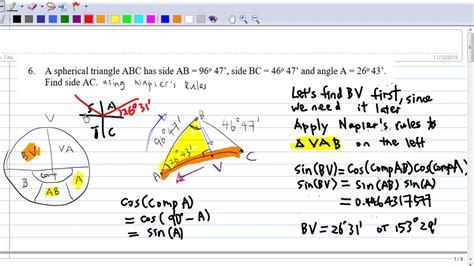 Title
11/12/2018
6. A spherical triangle ABC has side AB = 96° 47', side BC = 46° 47' and angle A = 26° 43'.
Find side AC. using Napier's Rules
S A
T C
26°31'
BV
VA
comp
A
AB
B
46°47'
26°43'
A
C
V
Let's find BV first, since
we need it later
Apply Napier's rules to
△ VAB on the left
sin(BV) = cos(comp AB) cos(comp A)
sin(BV) = sin(AB) sin(A)
= 0.4464317577
BV = 26°31' or 153°29'
cos(comp A)
= cos(90° - A)
= sin(A)
1 / 8